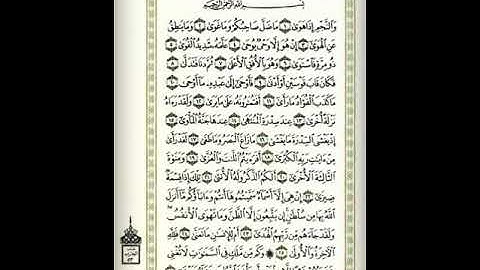 بِسْمِ ٱللَّهِ ٱلرَّحْمَٰنِ ٱلرَّحِيمِ
وَٱلنَّجْمِ إِذَا هَوَىٰ ١ مَا ضَلَّ صَاحِبُكُمْ وَمَا غَوَىٰ ٢ وَمَا يَنطِقُ
عَنِ ٱلْهَوَىٰٓ ٣ إِنْ هُوَ إِلَّا وَحْىٌ يُوحَىٰ ٤ عَلَّمَهُۥ شَدِيدُ ٱلْقُوَىٰ ٥
ذُو مِرَّةٍ فَٱسْتَوَىٰ ٦ وَهُوَ بِٱلْأُفُقِ ٱلْأَعْلَىٰ ٧ ثُمَّ دَنَا فَتَدَلَّىٰ ٨
فَكَانَ قَابَ قَوْسَيْنِ أَوْ أَدْنَىٰ ٩ فَأَوْحَىٰٓ إِلَىٰ عَبْدِهِۦ مَآ أَوْحَىٰ ١٠
مَا كَذَبَ ٱلْفُؤَادُ مَا رَأَىٰٓ ١١ أَفَتُمَٰرُونَهُۥ عَلَىٰ مَا يَرَىٰ ١٢ وَلَقَدْ رَءَاهُ
نَزْلَةً أُخْرَىٰ ١٣ عِندَ سِدْرَةِ ٱلْمُنتَهَىٰ ١٤ عِندَهَا جَنَّةُ ٱلْمَأْوَىٰٓ ١٥
إِذْ يَغْشَى ٱلسِّدْرَةَ مَا يَغْشَىٰ ١٦ مَا زَاغَ ٱلْبَصَرُ وَمَا طَغَىٰ ١٧ لَقَدْ رَأَىٰ
مِنْ ءَايَٰتِ رَبِّهِ ٱلْكُبْرَىٰٓ ١٨ أَفَرَءَيْتُمُ ٱللَّٰتَ وَٱلْعُزَّىٰ ١٩ وَمَنَوٰةَ
ٱلثَّالِثَةَ ٱلْأُخْرَىٰٓ ٢٠ أَلَكُمُ ٱلذَّكَرُ وَلَهُ ٱلْأُنثَىٰ ٢١ تِلْكَ إِذًا قِسْمَةٌ
ضِيزَىٰٓ ٢٢ إِنْ هِىَ إِلَّآ أَسْمَآءٌ سَمَّيْتُمُوهَآ أَنتُمْ وَءَابَآؤُكُم مَّآ أَنزَلَ
ٱللَّهُ بِهَا مِن سُلْطَٰنٍ إِن يَتَّبِعُونَ إِلَّا ٱلظَّنَّ وَمَا تَهْوَى ٱلْأَنفُسُ
وَلَقَدْ جَآءَهُم مِّن رَّبِّهِمُ ٱلْهُدَىٰٓ ٢٣ أَمْ لِلْإِنسَٰنِ مَا تَمَنَّىٰ ٢٤ فَلِلَّهِ
ٱلْءَاخِرَةُ وَٱلْأُولَىٰ ٢٥ وَكَم مِّن مَّلَكٍ فِى ٱلسَّمَٰوَٰتِ لَا تُغْنِى